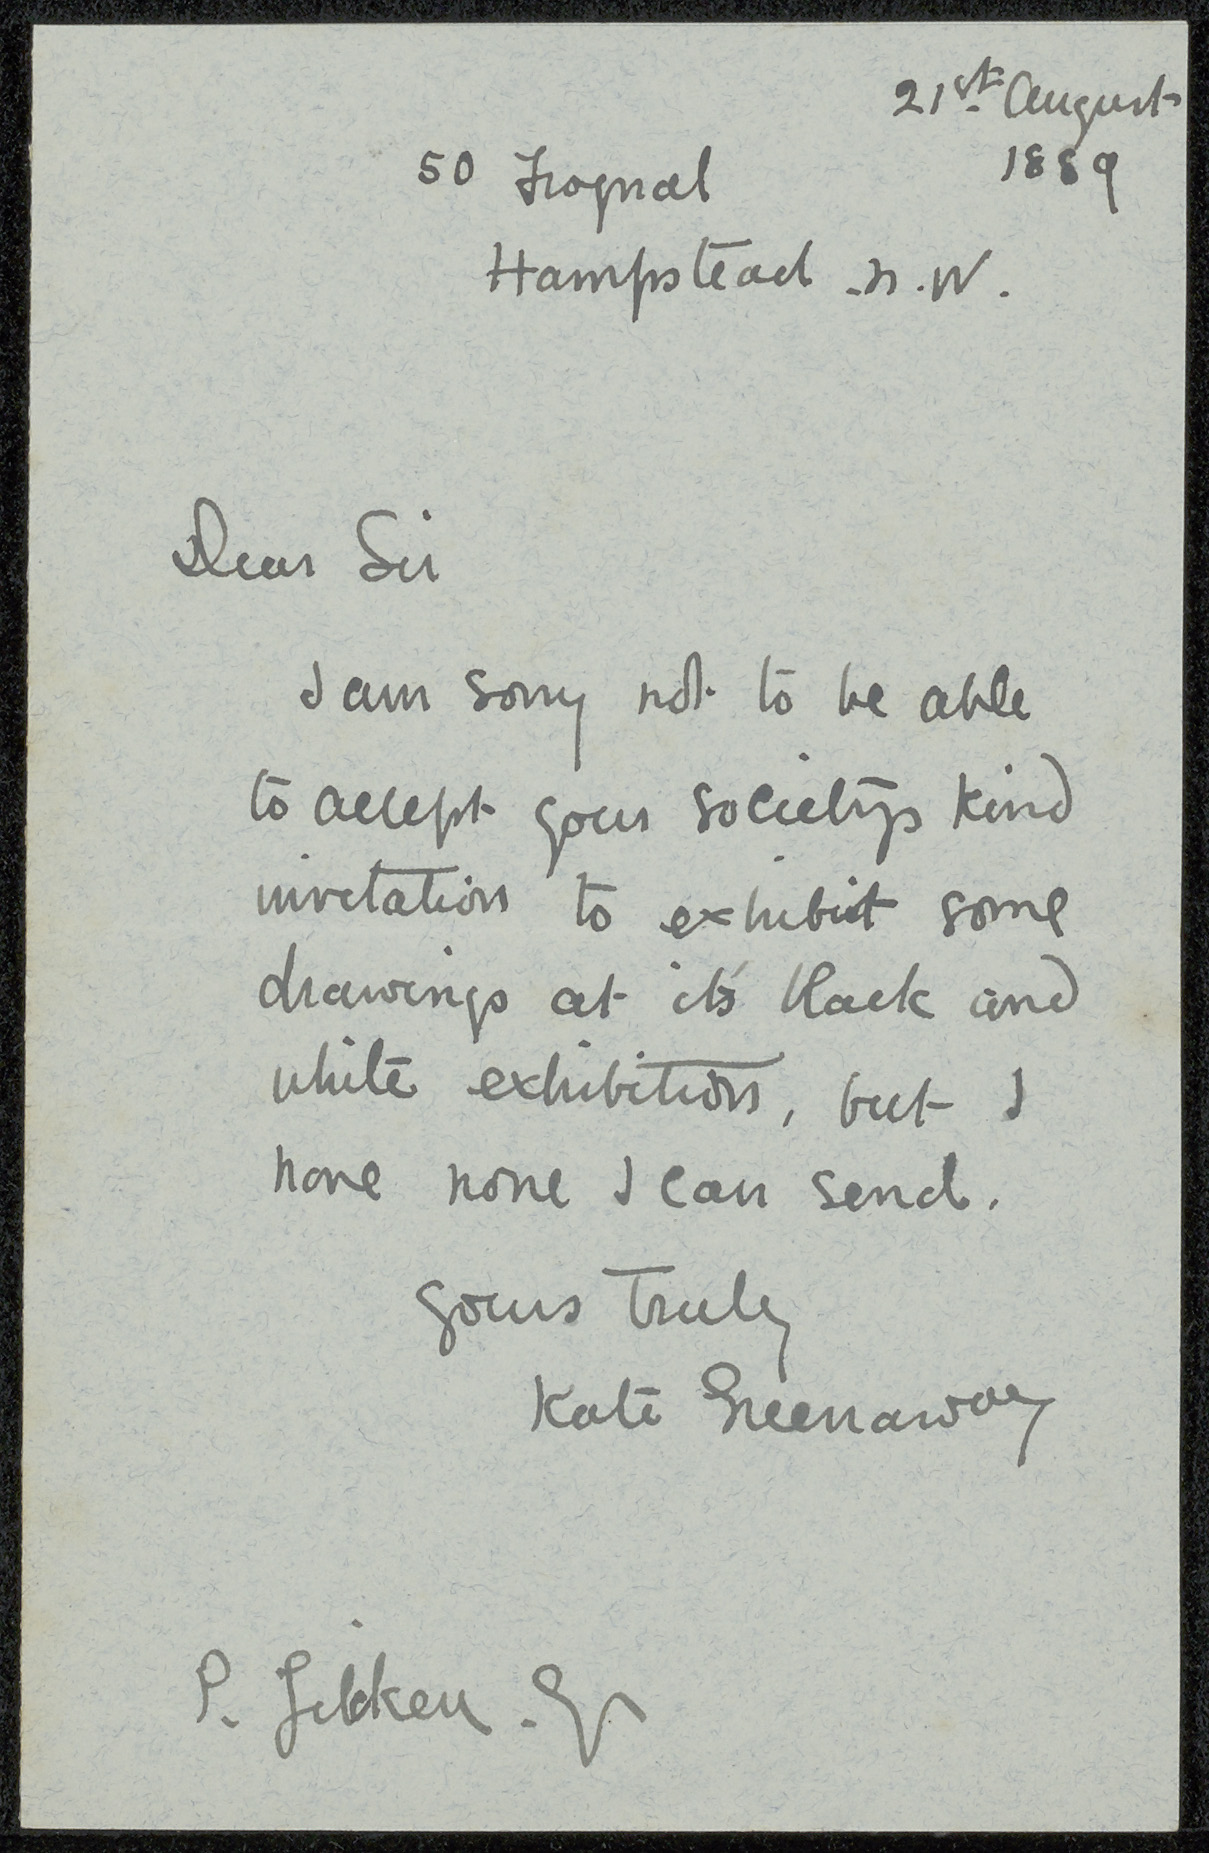 21st August
1889
50 Frognal
Hampstead . N . W .
Dear Sir
I am sorry not to be able
to accept your societys kind
invitation to exhibit some
drawings at it's black and
white exhibition, but I
have none I can send.
Yours truly
Kate Greenaway
P.